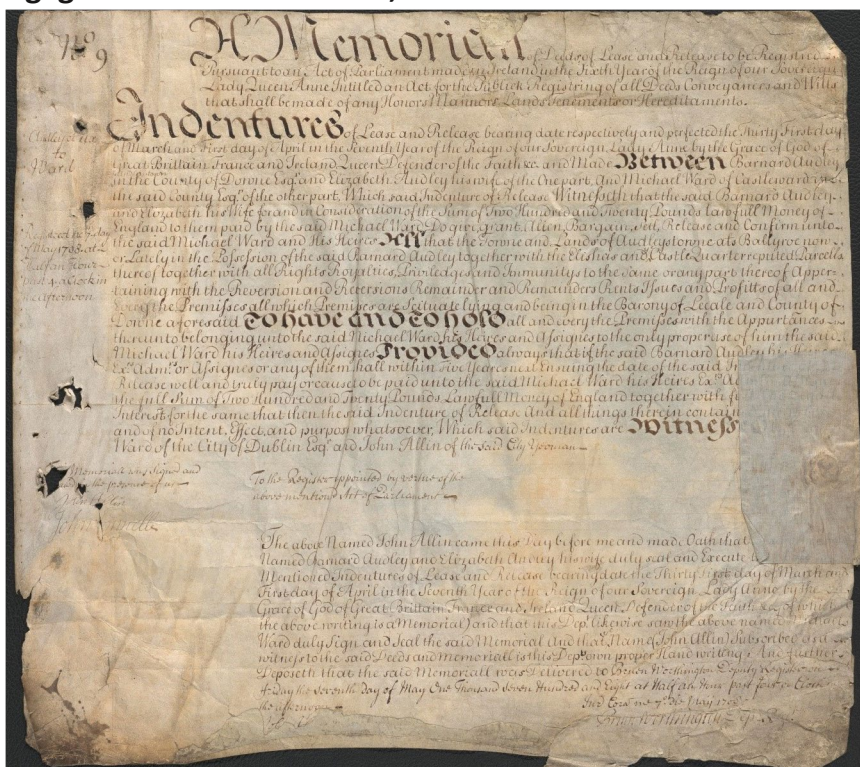 No 9
A Memorial of Deeds of Lease and Release to be Registred
Pursuant to an Act of Parliament made in Ireland in the Sixth Year of the Reign of our Sovereign
Lady Queen Anne Intitled an Act for the Publick Registring of all Deeds Conveyances and Wills
that shall be made of any Honors Mannors Lands Tenements or Hereditaments.
Indentures of Lease and Release bearing date respectively and perfected the Thirty First day
of March and First day of April in the Seventh Year of the Reign of our Sovereign Lady Anne by the Grace of God of
Great Brittain France and Ireland Queen Defender of the Faith &c. and Made Between Barnard Audley
in the County of Downe Esqr. and Elizabeth Audley his wife of the One part, And Michael Ward of Castleward in
the said County Esqr. of the other part, Which said Indenture of Release Witnesseth that the said Barnard Audley
and Elizabeth his Wife for and in Consideration of the Sum of Two Hundred and Twenty Pounds lawfull Money of
England to them paid by the said Michael Ward Do give, grant, Alien, Bargain, Sell, Release and Confirm unto
the said Michael Ward and His Heires All that the Towne and Lands of Audleystowne als Ballyroe now
or Lately in the Possession of the said Barnard Audley together with the and Castle Quarter reputed Parcells
thereof together with all Rights Royalties, Priviledges and Immunitys to the same or any part thereof Apper-
taining with the Reversion and Reversions Remainder and Remainders Rents Issues and Profitts of all and
Every the Premises all which Premises are Scituate lying and being in the Barony of Lecale and County of
Downe aforesaid To have and to hold all and every the Premises with the Appurtances
thereunto belonging unto the said Michael Ward his Heires and Assignes to the only proper use of him the said
Michael Ward his Heires and Assignes Provided always that if the said Barnard Audley his
Exs. Admrs. or Assignes or any of them shall within Five Years next Ensuing the date of the said
Release well and truly pay or cause to be paid unto the said Michael Ward his Heires Exs.
the full Sum of Two Hundred and Twenty Pounds Lawfull Money of England together with
Interest for the same that then the said Indenture of Release And all things therein contain
and of no Intent, Effect, and purpose whatsoever, Which said Indentures are Witness
Ward of the City of Dublin Esqr. and John Allin of the said City Yeoman
Audley
to
Ward
day
of May 1708 at
Half an Hour
past 4 a Clock in
the Afternoon
Memorial was Signed and
in the presence of us
John
To the Register appointed by vertue of the
above mentioned Act of Parliament
The above Named John Allin came this Day before me and made Oath that
Named Barnard Audley and Elizabeth Audley his wife duly seal and Execute
Mentioned Indentures of Lease and Release bearing date the Thirty First day of March and
First day of April in the Seventh Year of the Reign of our Sovereign Lady Anne by the
Grace of God of Great Brittain France and Ireland Queen Defender of the Faith &c. (of which
the above writing is a Memorial) and that this Dept. likewise saw the above named Michael
Ward duly Sign and Seal the said Memorial And that Name (John Allin) Subscribed as a
witness to the said Deeds and memoriall is this Depts. own proper Hand writeing And further
Deposeth that the said Memoriall was Delivered to Brian Worthington Deputy Register on
Friday the Seventh Day of May One Thousand Seven Hundred and Eight at Half an Hour past four a Clock
the afternoon
Jurd. Coram me 7o. die May 1708
Brian Worthington Dep. R